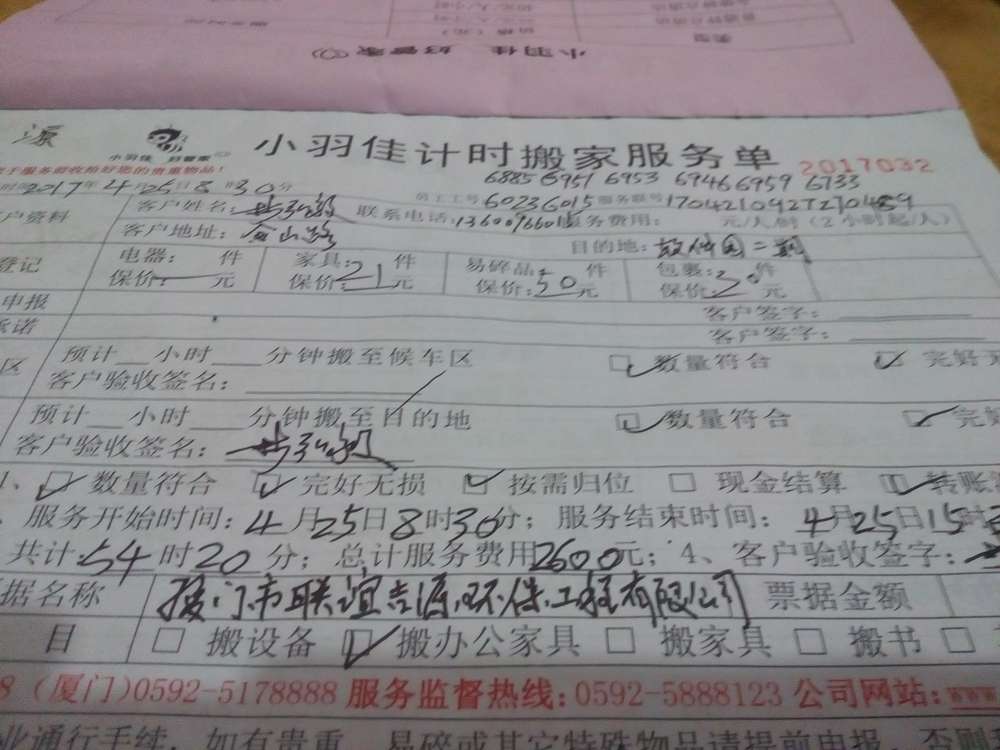 小羽佳 好管家
源
小羽佳 好管家
小羽佳计时搬家服务单
2017032
于服务前收拾好您的贵重物品!
6885 6951 6953 6946 6959 6733
时间2017年4月25日8时30分
员工工号60236015服务联号
户资料
客户姓名:
联系电话:
服务费用: 元/人时(2小时起/人)
客户地址:金山路
目的地:软件园二期
登记
电器: 件
家具:21件
易碎品: 件
包裹: 件
保价: 元
保价: 元
保价:50元
保价: 元
申报
客户签字:
承诺
客户签字:
区
预计 小时 分钟搬至候车区
数量符合
完好无
客户验收签名:
预计 小时 分钟搬至目的地
数量符合
完好
客户验收签名:
数量符合 完好无损 按需归位 现金结算 转账
服务开始时间:4月25日8时30分;服务结束时间:4月25日15时
共计:54时20分;总计服务费用2600元;4、客户验收签字:
据名称 厦门市联谊吉源环保工程有限公司 票据金额
目 搬设备 搬办公家具 搬家具 搬书
8(厦门)0592-5178888 服务监督热线:0592-5888123 公司网站:www
业通行手续,如有贵重、易碎或其它特殊物品请提前申报,否则